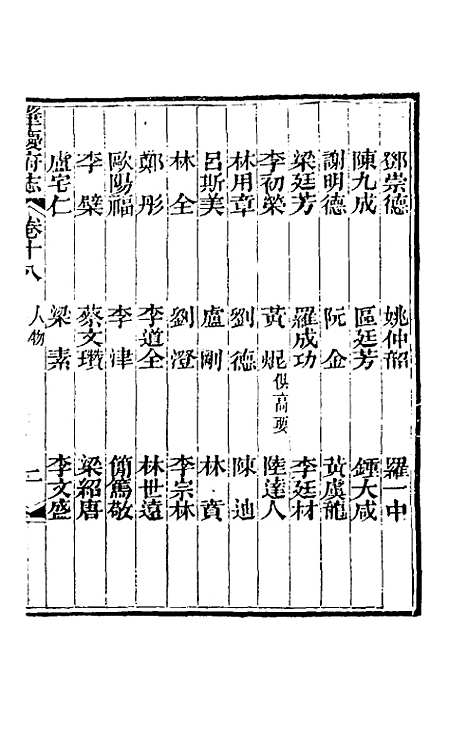 鄧崇德 姚仲韶 羅一中
陳九成 區廷芳 鍾大咸
謝明德 阮金 黃虞龍
梁廷芳 羅成功 李廷材
李初榮 黃焜俱高要 陸達人
林用章 劉德 陳迪
呂斯美 盧剛 林賁
林全 劉澄 李宗林
鄭彤 李道全 林世遠
歐陽福 李津 簡篤敬
李檗 蔡文瓚 梁紹唐
盧宅仁 梁素 李文盛
肇慶府志 卷十八 人物 二